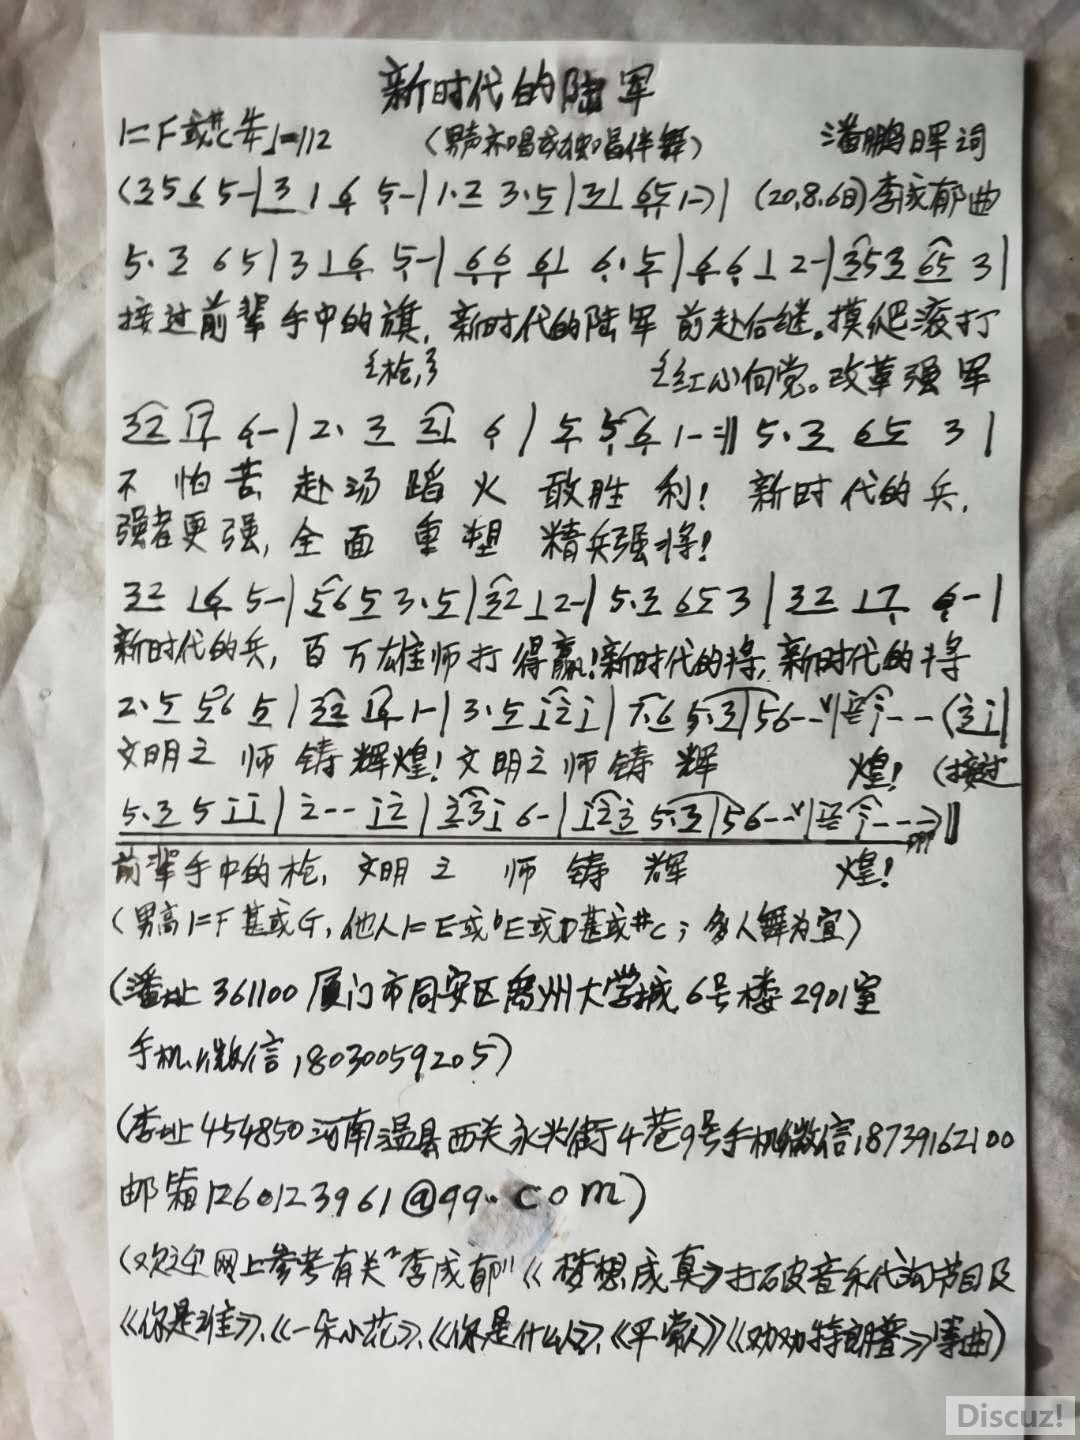 新时代的陆军
1=F或#C 4/4 ♩=112 （男声齐唱或独唱伴舞） 潘鹏晖词
(3 5 6 5-|3 1 6 5-|1·2 3·5|3 1 6 5 1-)| (20,8.6日)李成郁曲
5·3 6 5|3 1 6 5-|6 6 6 1 6·5|6 6 1 2-|3 5 3 6 5 3|
接过前辈手中的旗，新时代的陆军 前赴后继。摸爬滚打
{枪，} {红心向党。改革强军
3 2 1 7 6-|2·3 2 1 6|5 5 6 1-:‖5·3 6 5 3|
不怕苦 赴汤蹈火 敢胜利！新时代的兵，
强者更强，全面重塑 精兵强将！
3 2 1 6 5-|5 6 5 3·5|3 2 1 2-|5·3 6 5 3|3 2 1 7 6-|
新时代的兵，百万雄师打得赢！新时代的将，新时代的将
2·5 5 6 5|3 2 1 7 1-|3·5 i 2 i|7·6 5·3|5 6--ˇ|i---(2 i|
文明之师铸辉煌！文明之师铸辉 煌！（接过
5·3 5 i i|2--i 2|2 3 i 6-|i 2 3 5·3|5 6--ˇ|i---)‖
前辈手中的枪，文明之师铸辉 煌！
（男高1=F甚或G，他人1=E或bE或D甚或#C；多人舞为宜）
（潘址361100厦门市同安区禹州大学城6号楼2901室
手机/微信18030059205）
（李址454850河南温县西关永兴街4巷9号手机微信18739162100
邮箱1260123961@qq.com）
（欢迎网上参考有关"李成郁"《梦想成真》打破音乐代沟节目及
《你是谁》、《一朵小花》、《你是什么人》、《平常人》《劝劝特朗普》等曲）
Discuz!